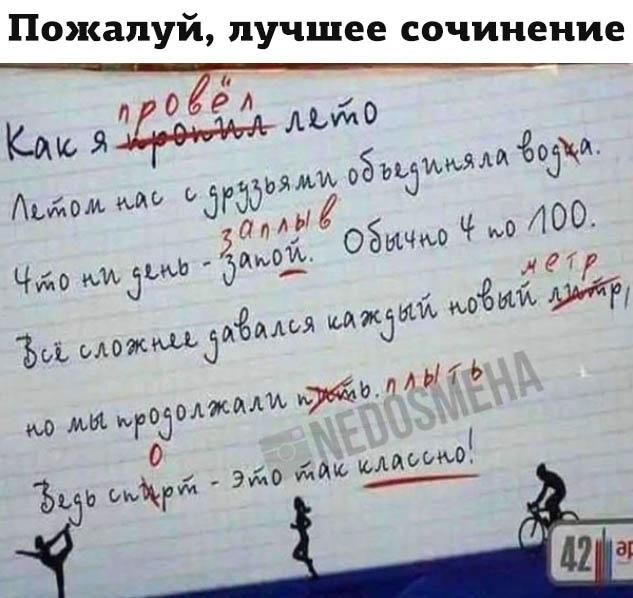 Пожалуй, лучшее сочинение
провёл
Как я пропил лето
Летом нас с друзьями объединяла водка.
заплыв
Что ни день - запой. Обычно 4 по 100.
метр
Всё сложнее давался каждый новый литр,
но мы продолжали пить. плыть
NEDOSMEHA
о
Ведь спирт - это так классно!
42 ар